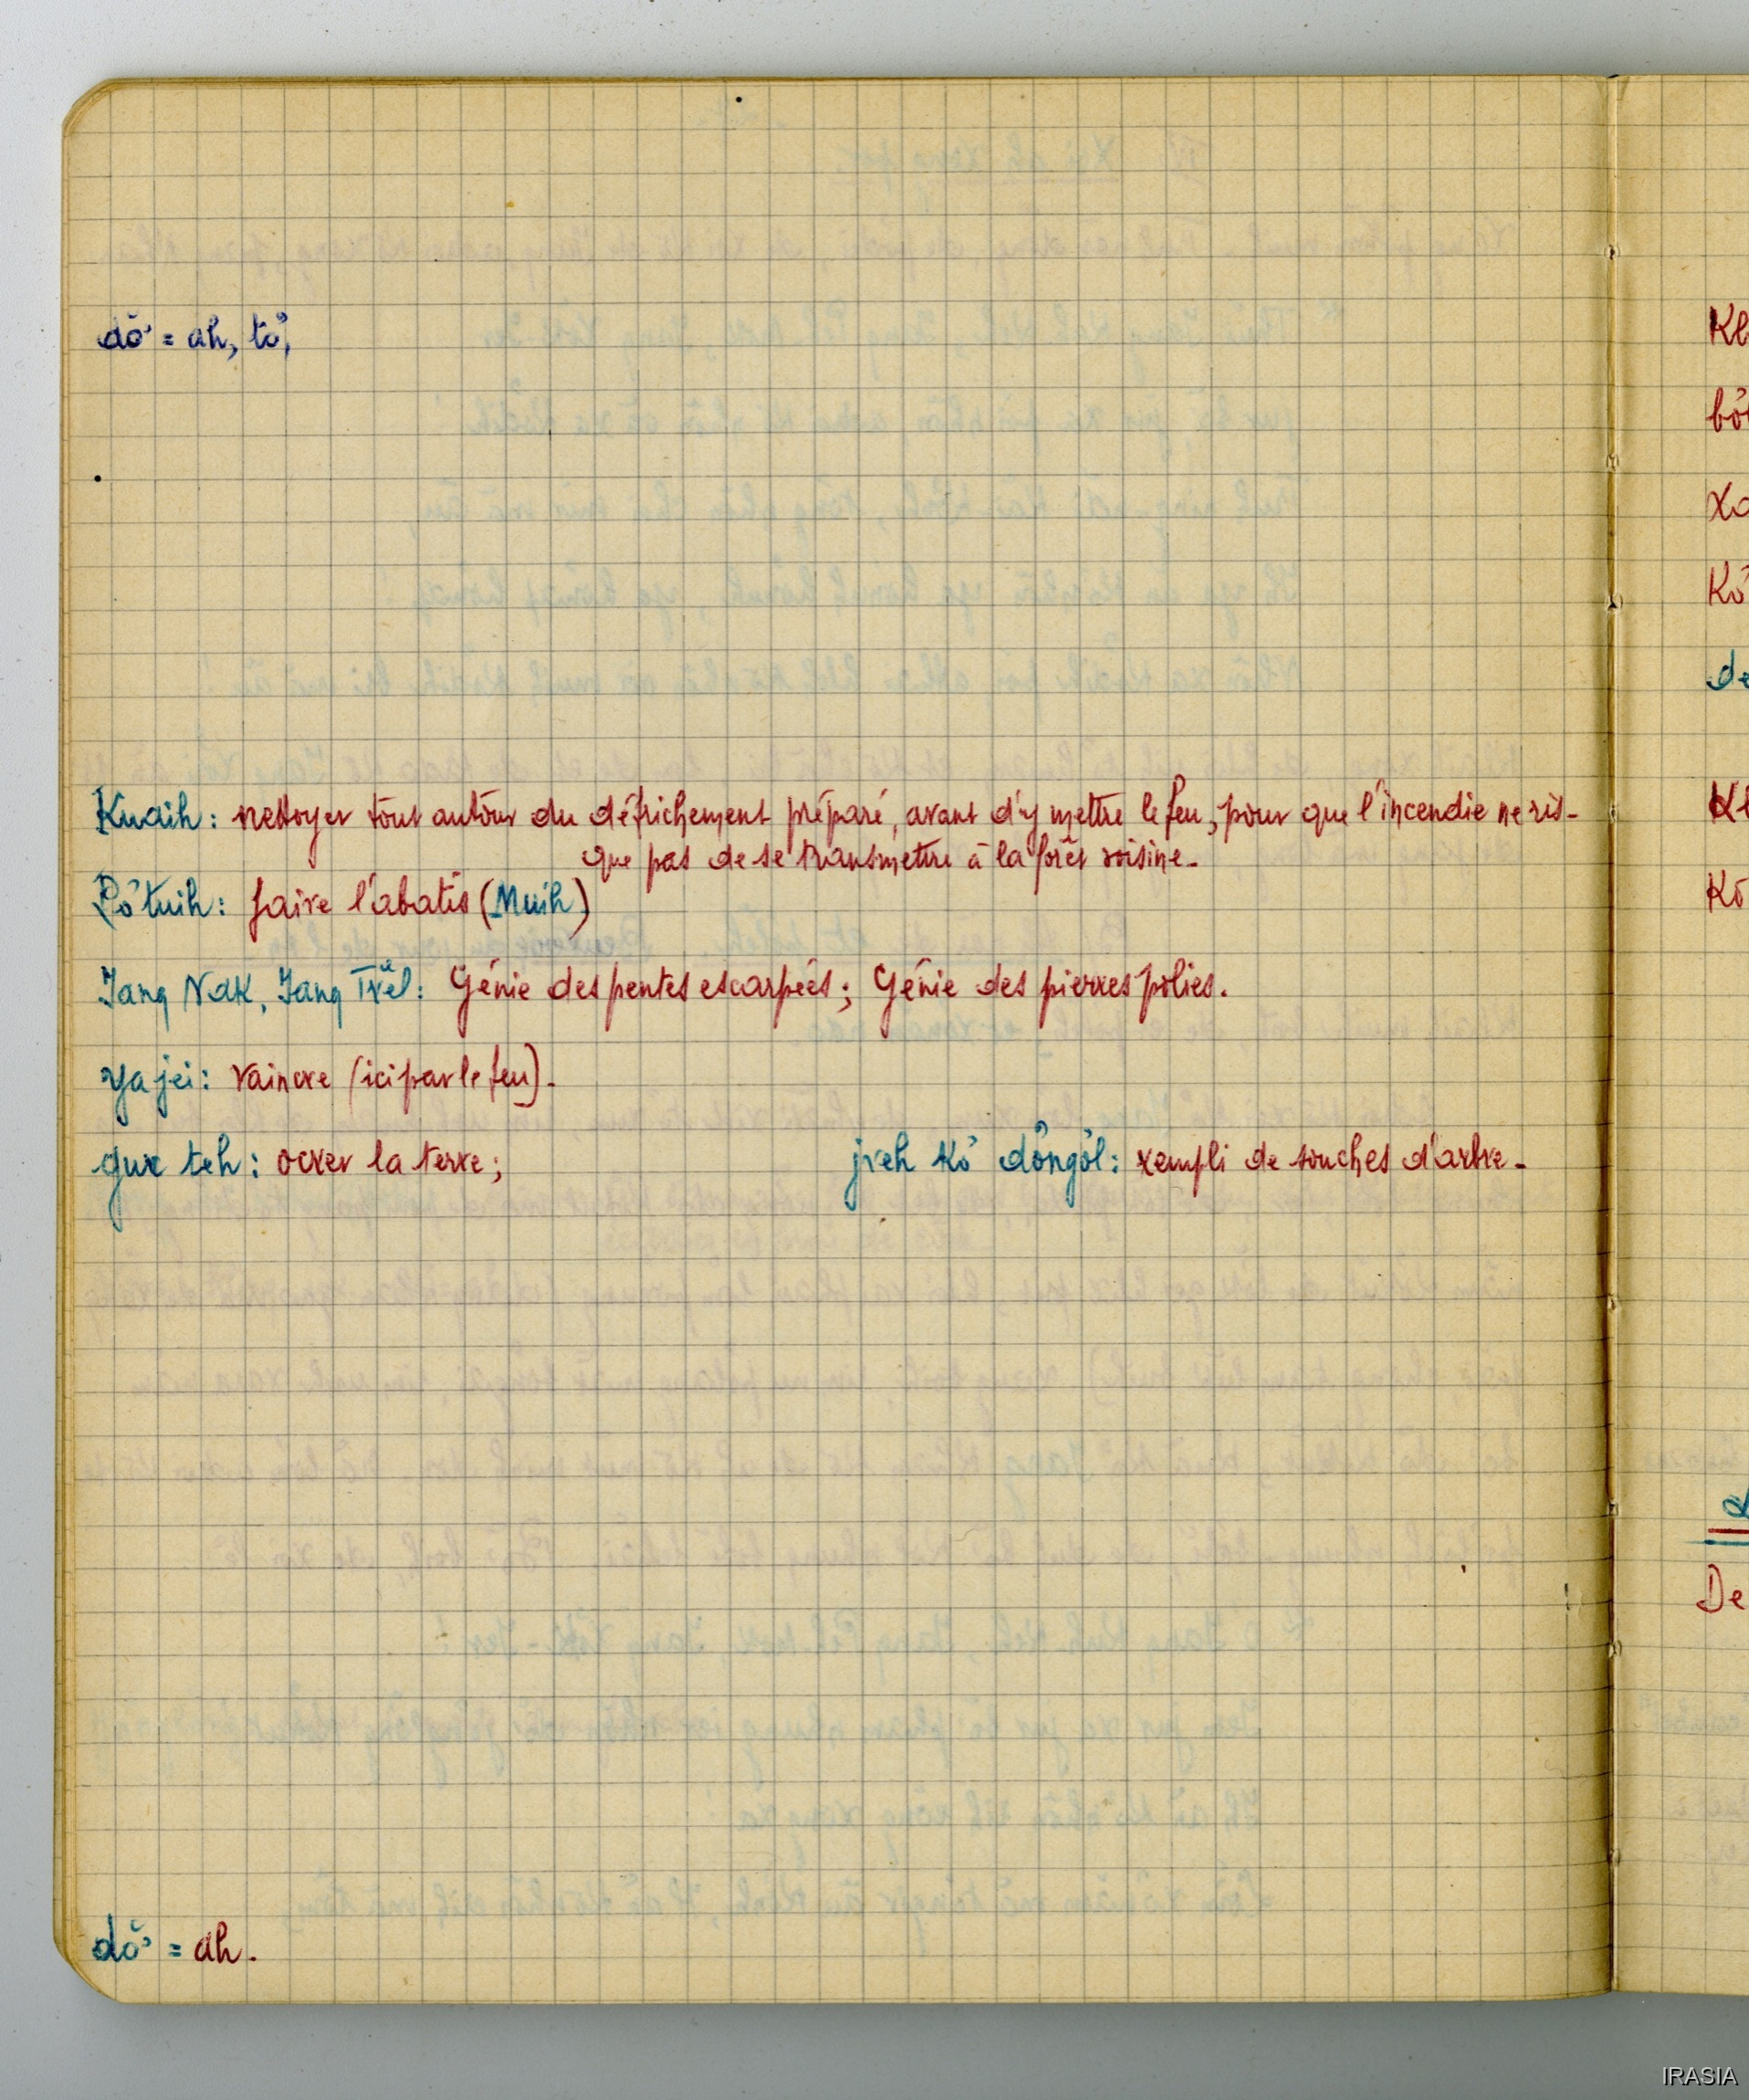 dơ̆ = ah, tơ̆,
Kuaih: nettoyer tout autour du défrichement préparé, avant d'y mettre le feu, pour que l'incendie ne ris-
que pas de se transmettre à la forêt voisine.
Pơtuih: faire l'abatis (Muih)
Jang Nak, Jang Trĕl: Génie des pentes escarpées; Génie des pierres polies.
ya jei: vaincre (ici par le feu).
gur teh: ocrer la terre; jreh kơ̆ dôngôl: rempli de souches d'arbre.
dơ̆ = ah.
IRASIA